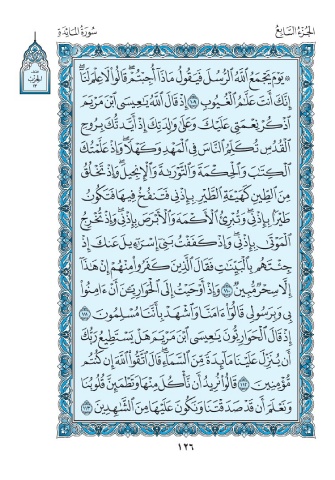 الجزء السابع
سورة المائدة
۞ يَوْمَ يَجْمَعُ ٱللَّهُ ٱلرُّسُلَ فَيَقُولُ مَاذَآ أُجِبْتُمْ ۖ قَالُوا۟ لَا عِلْمَ لَنَآ ۖ
إِنَّكَ أَنتَ عَلَّـٰمُ ٱلْغُيُوبِ ١٠٩ إِذْ قَالَ ٱللَّهُ يَـٰعِيسَى ٱبْنَ مَرْيَمَ
ٱذْكُرْ نِعْمَتِى عَلَيْكَ وَعَلَىٰ وَٰلِدَتِكَ إِذْ أَيَّدتُّكَ بِرُوحِ
ٱلْقُدُسِ تُكَلِّمُ ٱلنَّاسَ فِى ٱلْمَهْدِ وَكَهْلًا ۖ وَإِذْ عَلَّمْتُكَ
ٱلْكِتَـٰبَ وَٱلْحِكْمَةَ وَٱلتَّوْرَىٰةَ وَٱلْإِنجِيلَ ۖ وَإِذْ تَخْلُقُ
مِنَ ٱلطِّينِ كَهَيْـَٔةِ ٱلطَّيْرِ بِإِذْنِى فَتَنفُخُ فِيهَا فَتَكُونُ
طَيْرًۢا بِإِذْنِى ۖ وَتُبْرِئُ ٱلْأَكْمَهَ وَٱلْأَبْرَصَ بِإِذْنِى ۖ وَإِذْ تُخْرِجُ
ٱلْمَوْتَىٰ بِإِذْنِى ۖ وَإِذْ كَفَفْتُ بَنِىٓ إِسْرَٰٓءِيلَ عَنكَ إِذْ
جِئْتَهُم بِٱلْبَيِّنَـٰتِ فَقَالَ ٱلَّذِينَ كَفَرُوا۟ مِنْهُمْ إِنْ هَـٰذَآ
إِلَّا سِحْرٌ مُّبِينٌ ١١٠ وَإِذْ أَوْحَيْتُ إِلَى ٱلْحَوَارِيِّـۧنَ أَنْ ءَامِنُوا۟
بِى وَبِرَسُولِى قَالُوٓا۟ ءَامَنَّا وَٱشْهَدْ بِأَنَّنَا مُسْلِمُونَ ١١١
إِذْ قَالَ ٱلْحَوَارِيُّونَ يَـٰعِيسَى ٱبْنَ مَرْيَمَ هَلْ يَسْتَطِيعُ رَبُّكَ
أَن يُنَزِّلَ عَلَيْنَا مَآئِدَةً مِّنَ ٱلسَّمَآءِ ۖ قَالَ ٱتَّقُوا۟ ٱللَّهَ إِن كُنتُم
مُّؤْمِنِينَ ١١٢ قَالُوا۟ نُرِيدُ أَن نَّأْكُلَ مِنْهَا وَتَطْمَئِنَّ قُلُوبُنَا
وَنَعْلَمَ أَن قَدْ صَدَقْتَنَا وَنَكُونَ عَلَيْهَا مِنَ ٱلشَّـٰهِدِينَ ١١٣
١٢٦